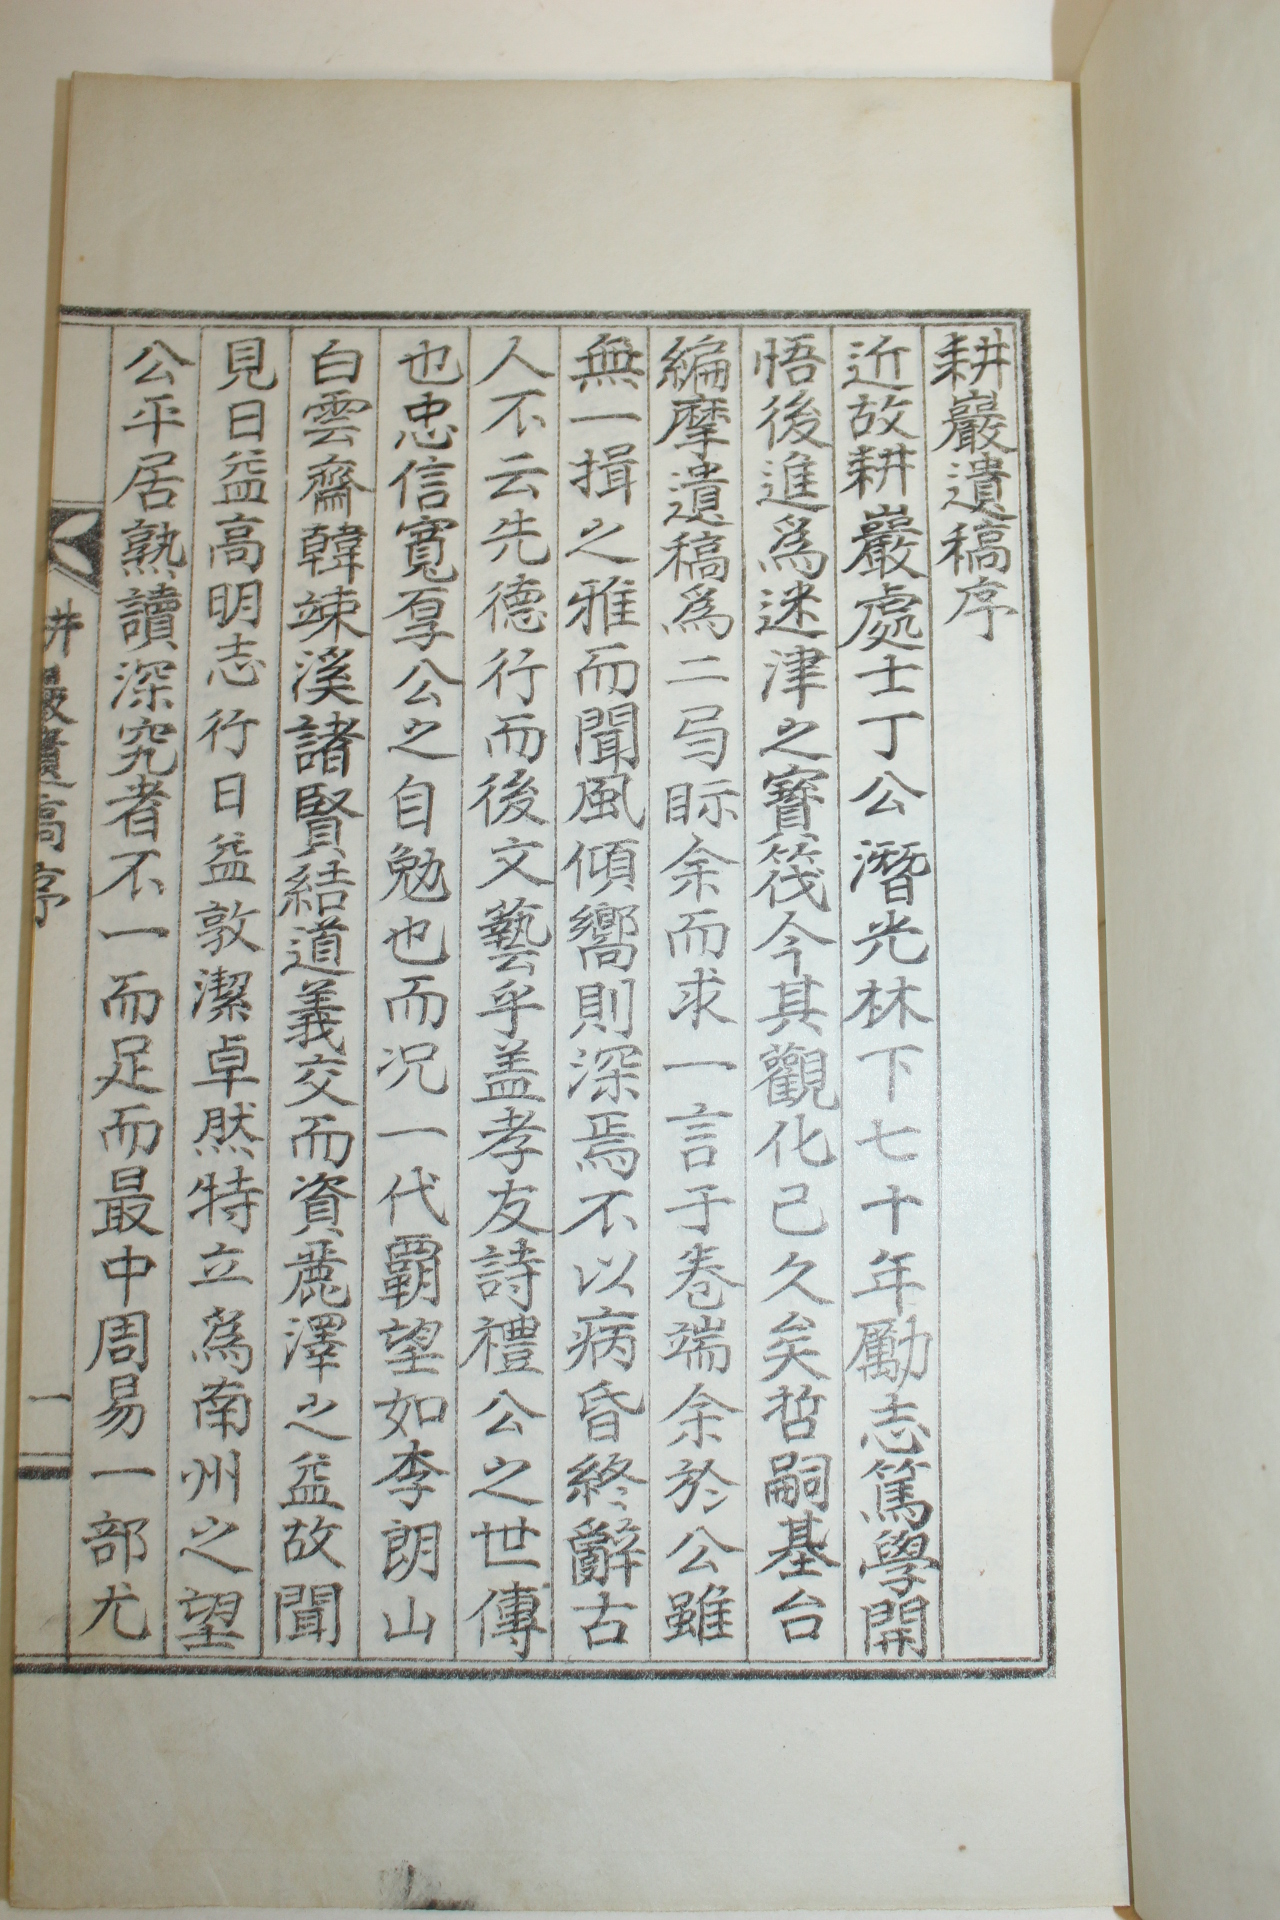 耕巖遺稿序
近故耕巖處士丁公潛光林下七十年勵志篤學開
悟後進爲迷津之寶筏今其觀化已久矣哲嗣基台
編摩遺稿爲二弓眎余而求一言于卷端余於公雖
無一揖之雅而聞風傾嚮則深焉不以病昏終辭古
人不云先德行而後文藝乎盖孝友詩禮公之世傳
也忠信寬厚公之自勉也而况一代覇望如李朗山
白雲齋韓竦溪諸賢結道義交而資麗澤之益故聞
見日益高明志行日益敦潔卓然特立爲南州之望
公平居熟讀深究者不一而足而最中周易一部尤
耕巖遺稿序
一